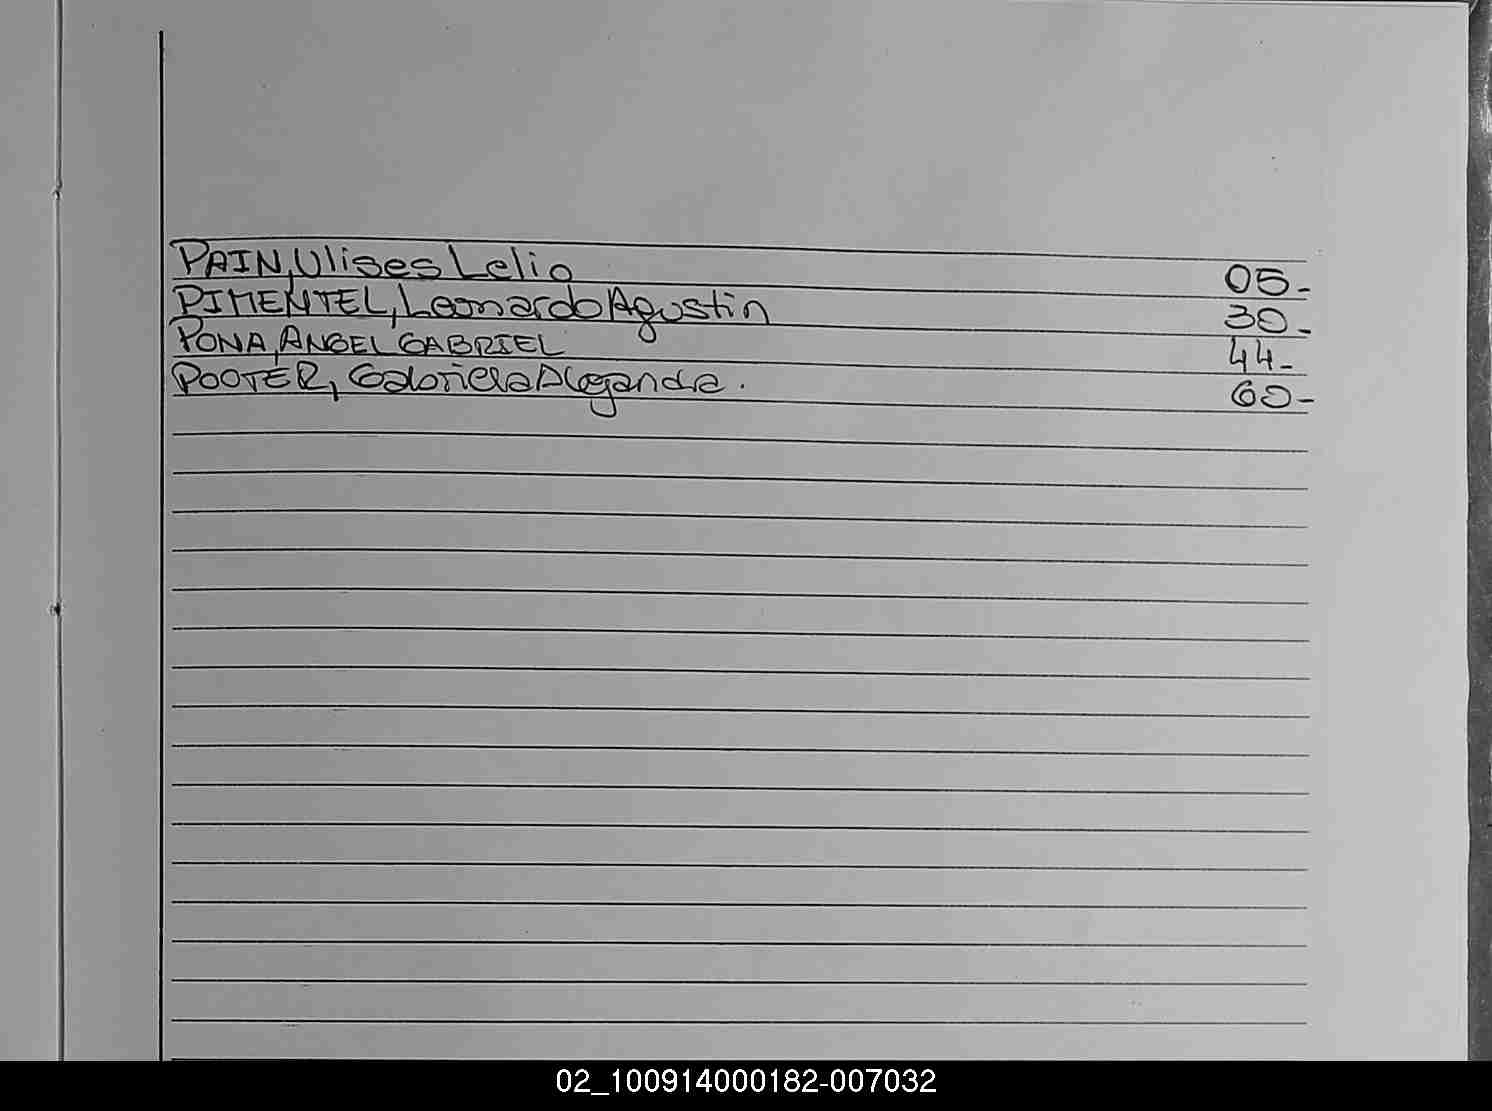 PAIN, Ulises Lelio 05-
PIMENTEL, Leonardo Agustin 30-
PONA, ANGEL GABRIEL 44-
POOTER, Gabriela Alejandra. 60-
02_100914000182-007032